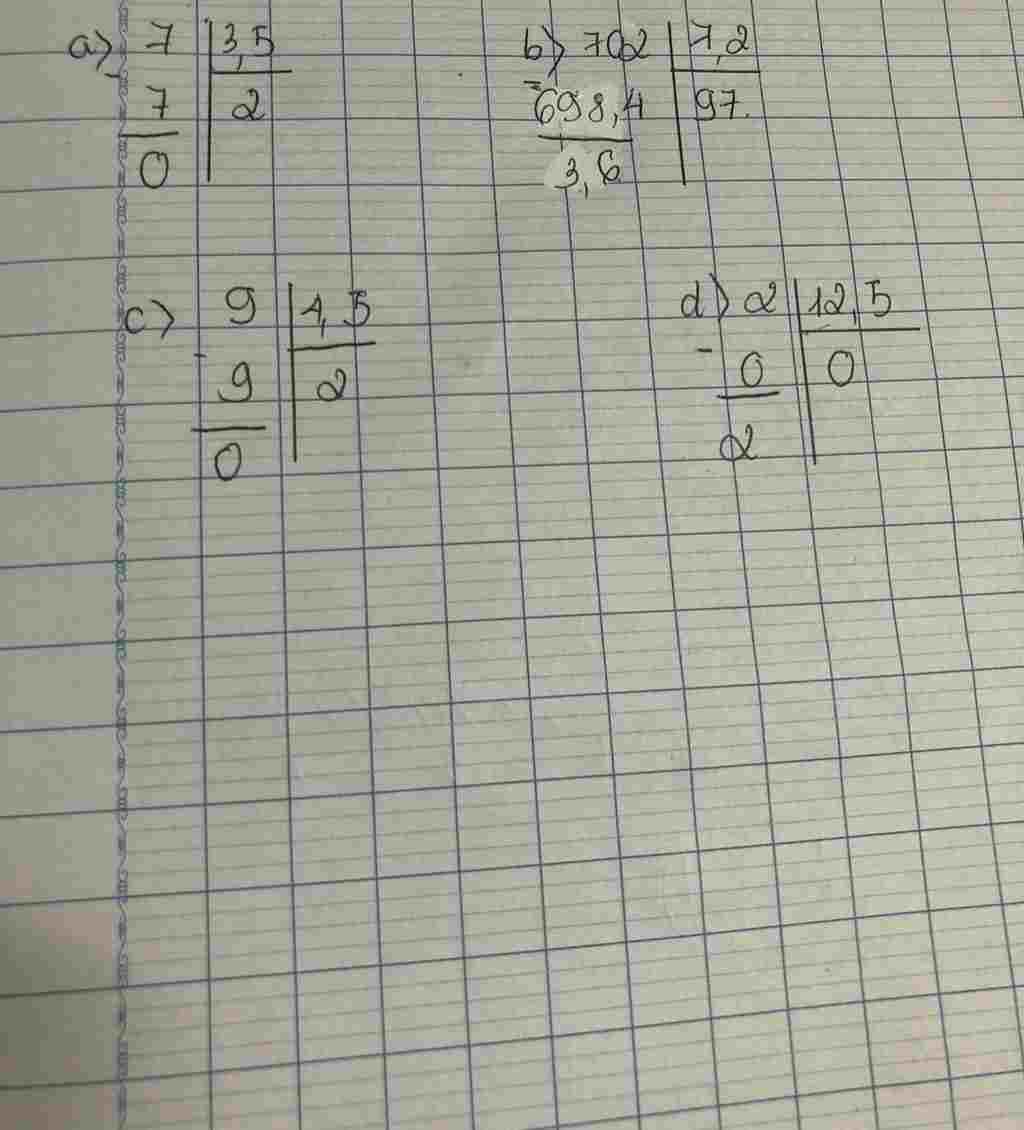 a) 7 | 3,5 b) 702 | 7,2
- 7 | 2 - 698,4 | 97.
0 3,6
c) 9 | 4,5 d) 2 | 12,5
- 9 | 2 - 0 | 0
0 2